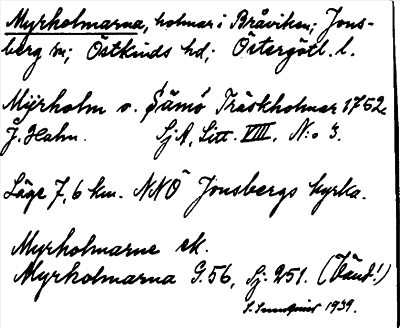 Myrholmarna, holmar i Bråviken; Jons-
berg sn; Östkinds hd; Östergötl. l.
Myrholm o. Sämö Träskholmar 1752.
J. Hahn. Lj A, Litt. VIII, N:o 3.
Läge 7,6 km. NNÖ Jonsbergs kyrka.
Myrholmarne ek.
Myrholmarna G. 56, Sj. 251. (Vänd!)
1939.